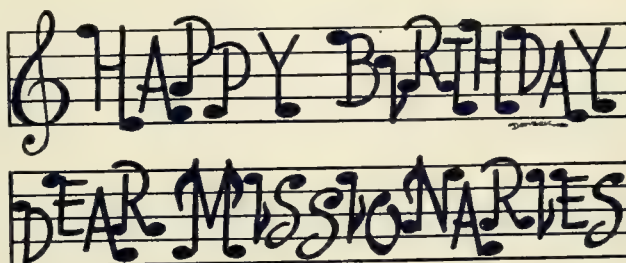 HAPPY BiRTHDAY
DEAR MiSSiONARiES